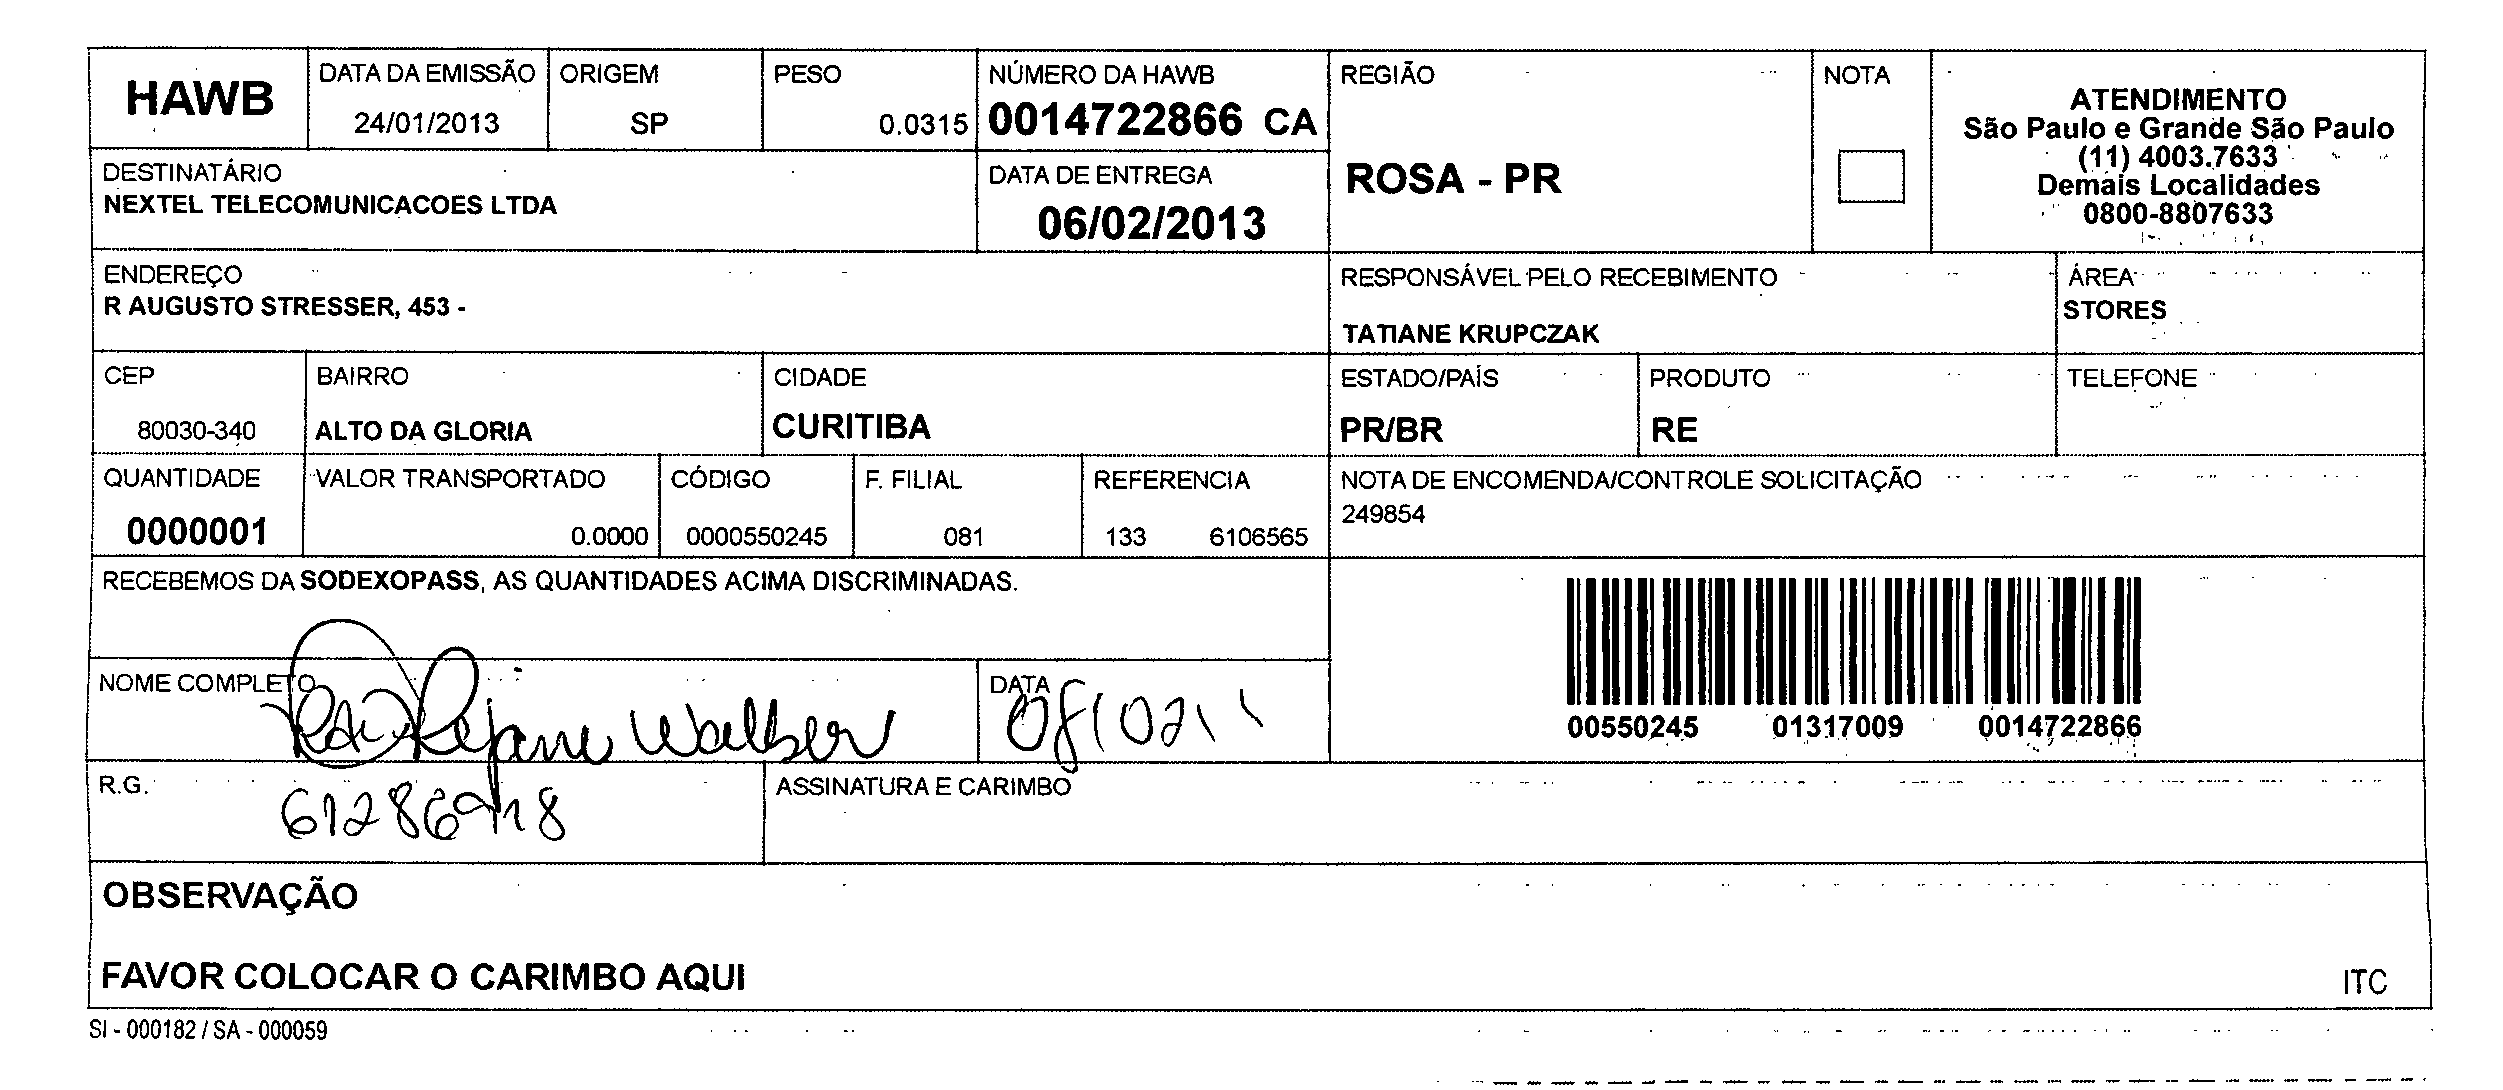 HAWB
DATA DA EMISSÃO
24/01/2013
ORIGEM
SP
PESO
0.0315
NÚMERO DA HAWB
0014722866 CA
REGIÃO
ROSA - PR
NOTA
ATENDIMENTO
São Paulo e Grande São Paulo
(11) 4003.7633
Demais Localidades
0800-8807633
DESTINATÁRIO
NEXTEL TELECOMUNICACOES LTDA
DATA DE ENTREGA
06/02/2013
ENDEREÇO
R AUGUSTO STRESSER, 453 -
RESPONSÁVEL PELO RECEBIMENTO
TATIANE KRUPCZAK
ÁREA
STORES
CEP
80030-340
BAIRRO
ALTO DA GLORIA
CIDADE
CURITIBA
ESTADO/PAÍS
PR/BR
PRODUTO
RE
TELEFONE
QUANTIDADE
0000001
VALOR TRANSPORTADO
0.0000
CÓDIGO
0000550245
F. FILIAL
081
REFERENCIA
133 6106565
NOTA DE ENCOMENDA/CONTROLE SOLICITAÇÃO
249854
RECEBEMOS DA SODEXOPASS, AS QUANTIDADES ACIMA DISCRIMINADAS.
NOME COMPLETO
Rejane Walber
DATA
00550245 01317009 0014722866
R.G.
ASSINATURA E CARIMBO
OBSERVAÇÃO
FAVOR COLOCAR O CARIMBO AQUI
ITC
SI - 000182 / SA - 000059